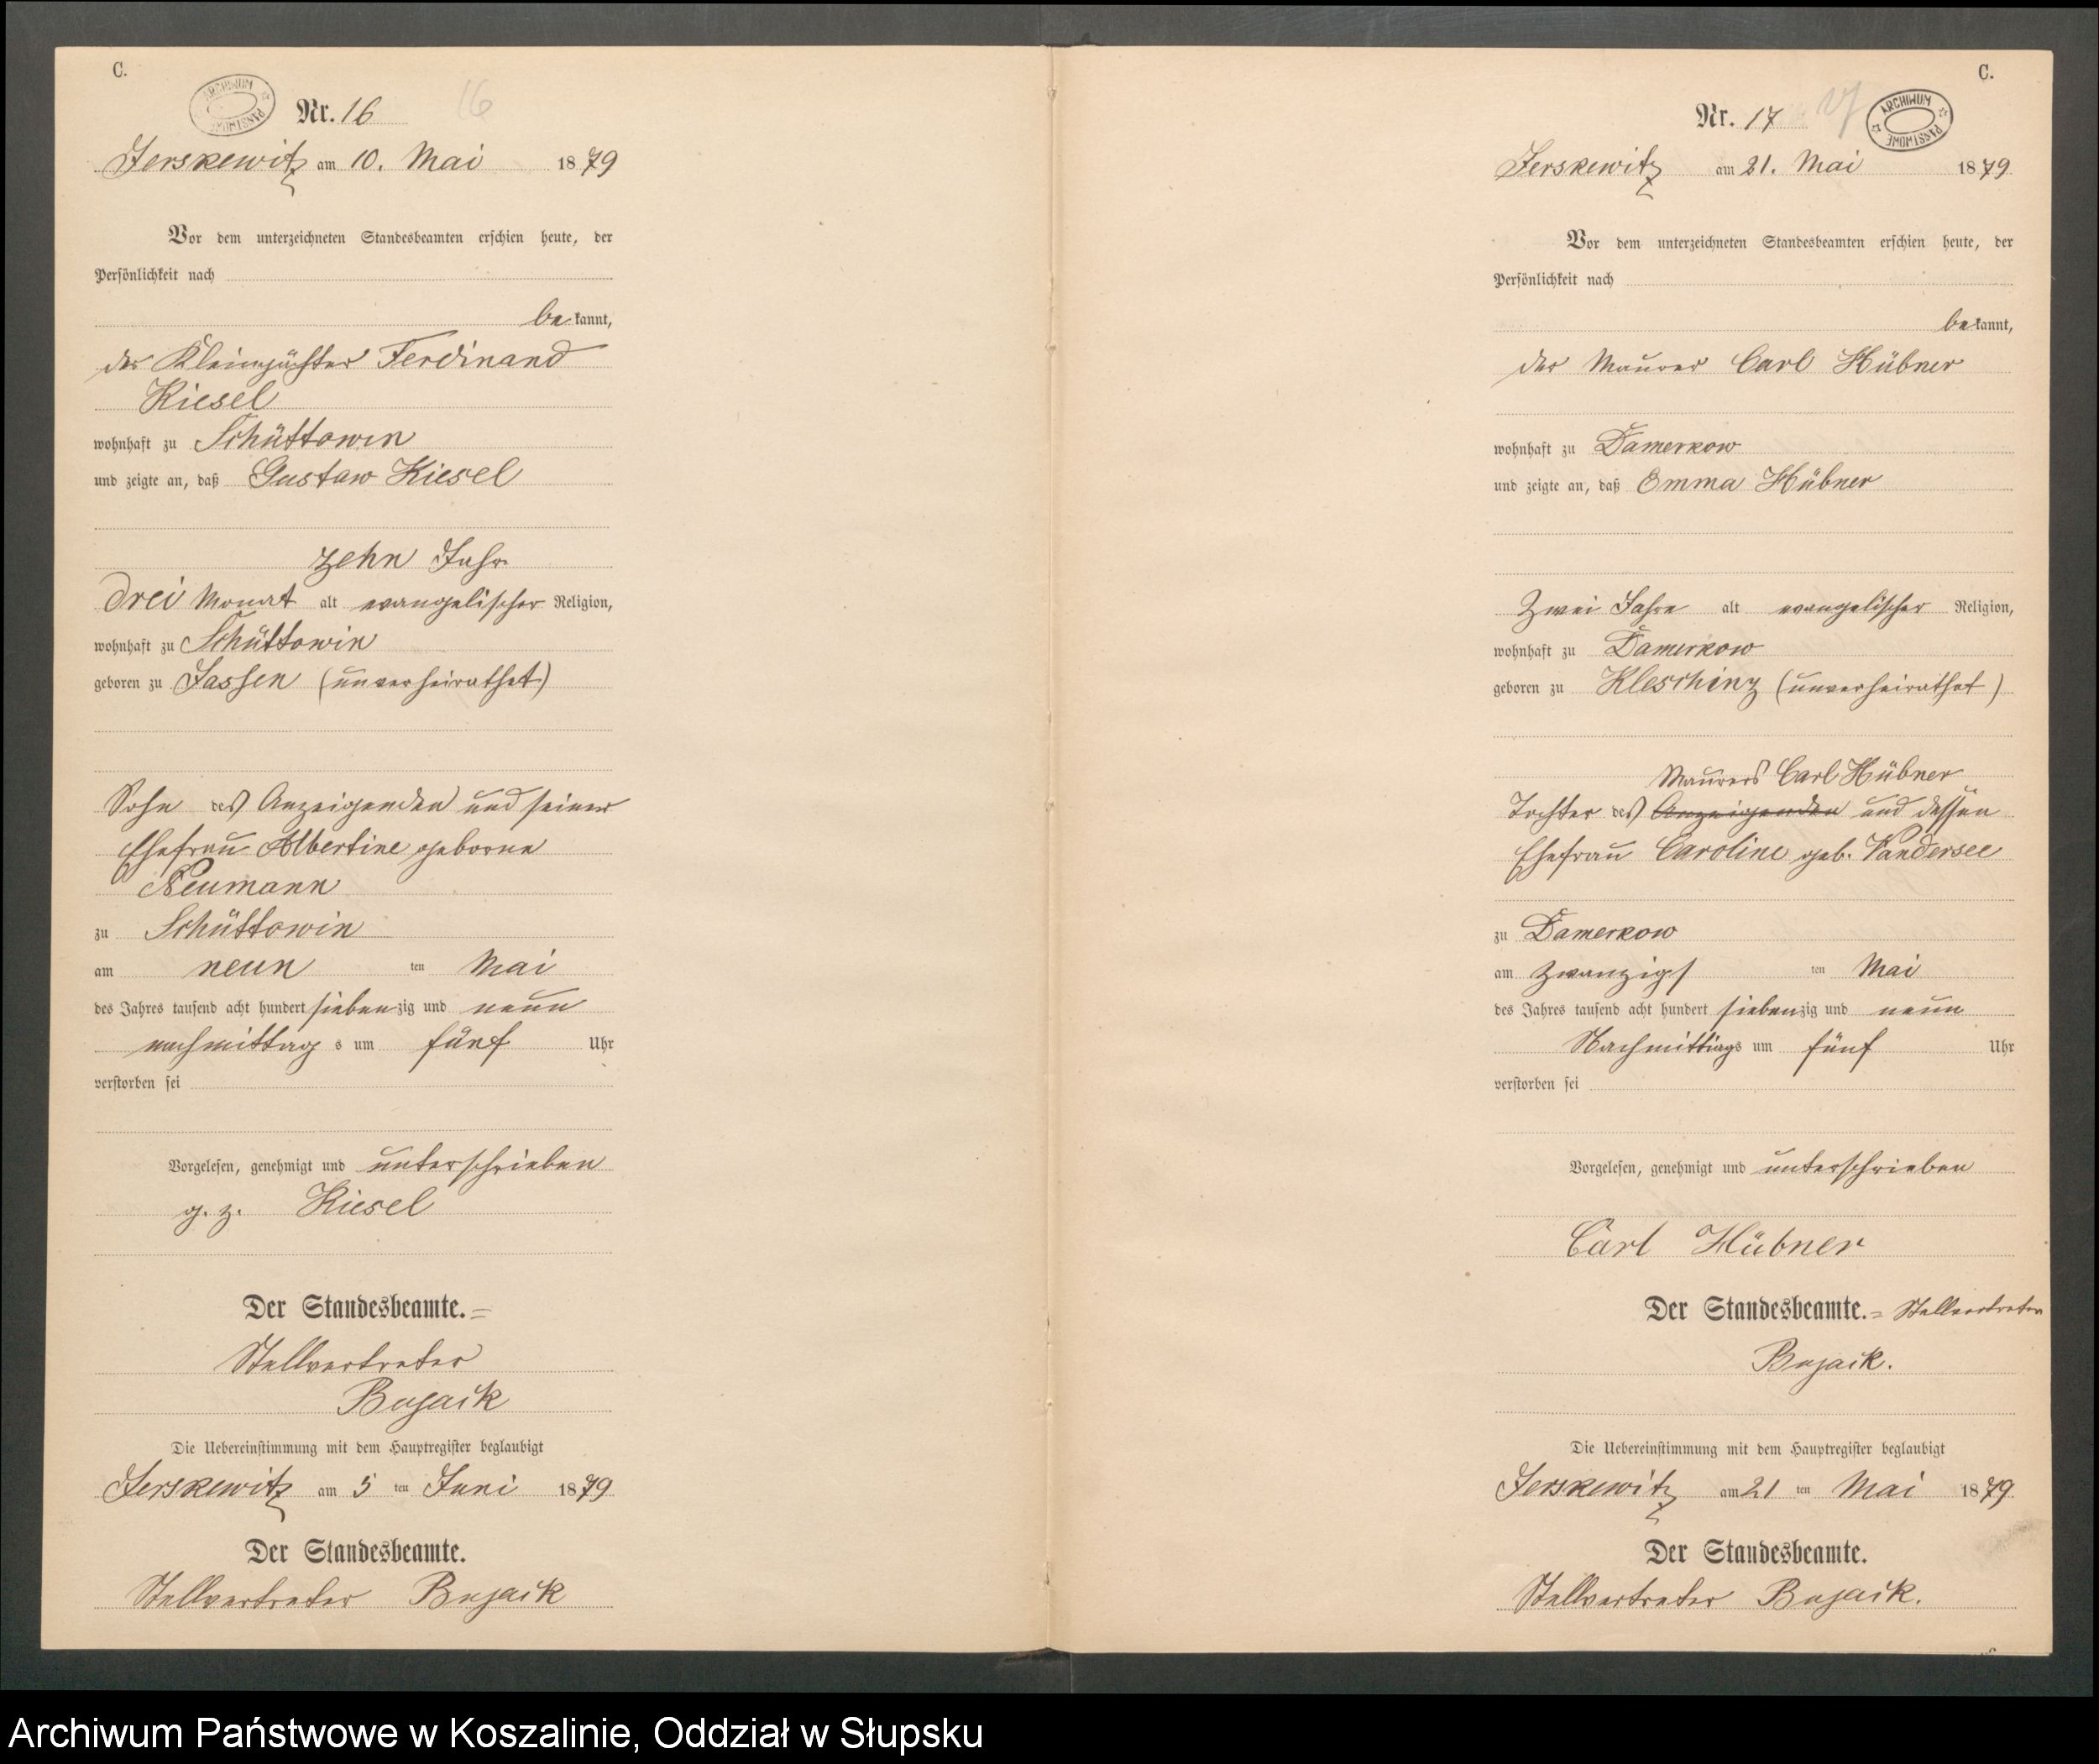 C.
ARCHIWUM PAŃSTWOWE
Nr. 16
16
Jerskewitz am 10. Mai 1879
Vor dem unterzeichneten Standesbeamten erschien heute, der
Persönlichkeit nach
bekannt,
der Kleinpächter Ferdinand
Kiesel
wohnhaft zu Schüttowin
und zeigte an, daß Gustaw Kiesel
zehn Jahr
drei Monat alt evangelischer Religion,
wohnhaft zu Schüttowin
geboren zu Jassen (unverheirathet)
Sohn des Anzeigenden und seiner
Ehefrau Albertine geborne
Neumann
zu Schüttowin
am neun ten Mai
des Jahres tausend acht hundert siebenzig und neun
nachmittag s um fünf Uhr
verstorben sei
Vorgelesen, genehmigt und unterschrieben
g. z. Kiesel
Der Standesbeamte.=
Stellvertreter
Bujack
Die Uebereinstimmung mit dem Hauptregister beglaubigt
Jerskewitz am 5 ten Juni 1879
Der Standesbeamte.
Stellvertreter Bujack
C.
Nr. 17
17
ARCHIWUM PAŃSTWOWE
Jerskewitz am 21. Mai 1879
Vor dem unterzeichneten Standesbeamten erschien heute, der
Persönlichkeit nach
bekannt,
der Maurer Carl Hübner
wohnhaft zu Damerkow
und zeigte an, daß Emma Hübner
Zwei Jahre alt evangelischer Religion,
wohnhaft zu Damerkow
geboren zu Kleschinz (unverheirathet)
Maurers Carl Hübner
Tochter des Anzeigenden und dessen
Ehefrau Caroline geb. Vandersee
zu Damerkow
am zwanzigs ten Mai
des Jahres tausend acht hundert siebenzig und neun
Nachmittags um fünf Uhr
verstorben sei
Vorgelesen, genehmigt und unterschrieben
Carl Hübner
Der Standesbeamte.= Stellvertreter
Bujack.
Die Uebereinstimmung mit dem Hauptregister beglaubigt
Jerskewitz am 21 ten Mai 1879
Der Standesbeamte.
Stellvertreter Bujack.
Archiwum Państwowe w Koszalinie, Oddział w Słupsku